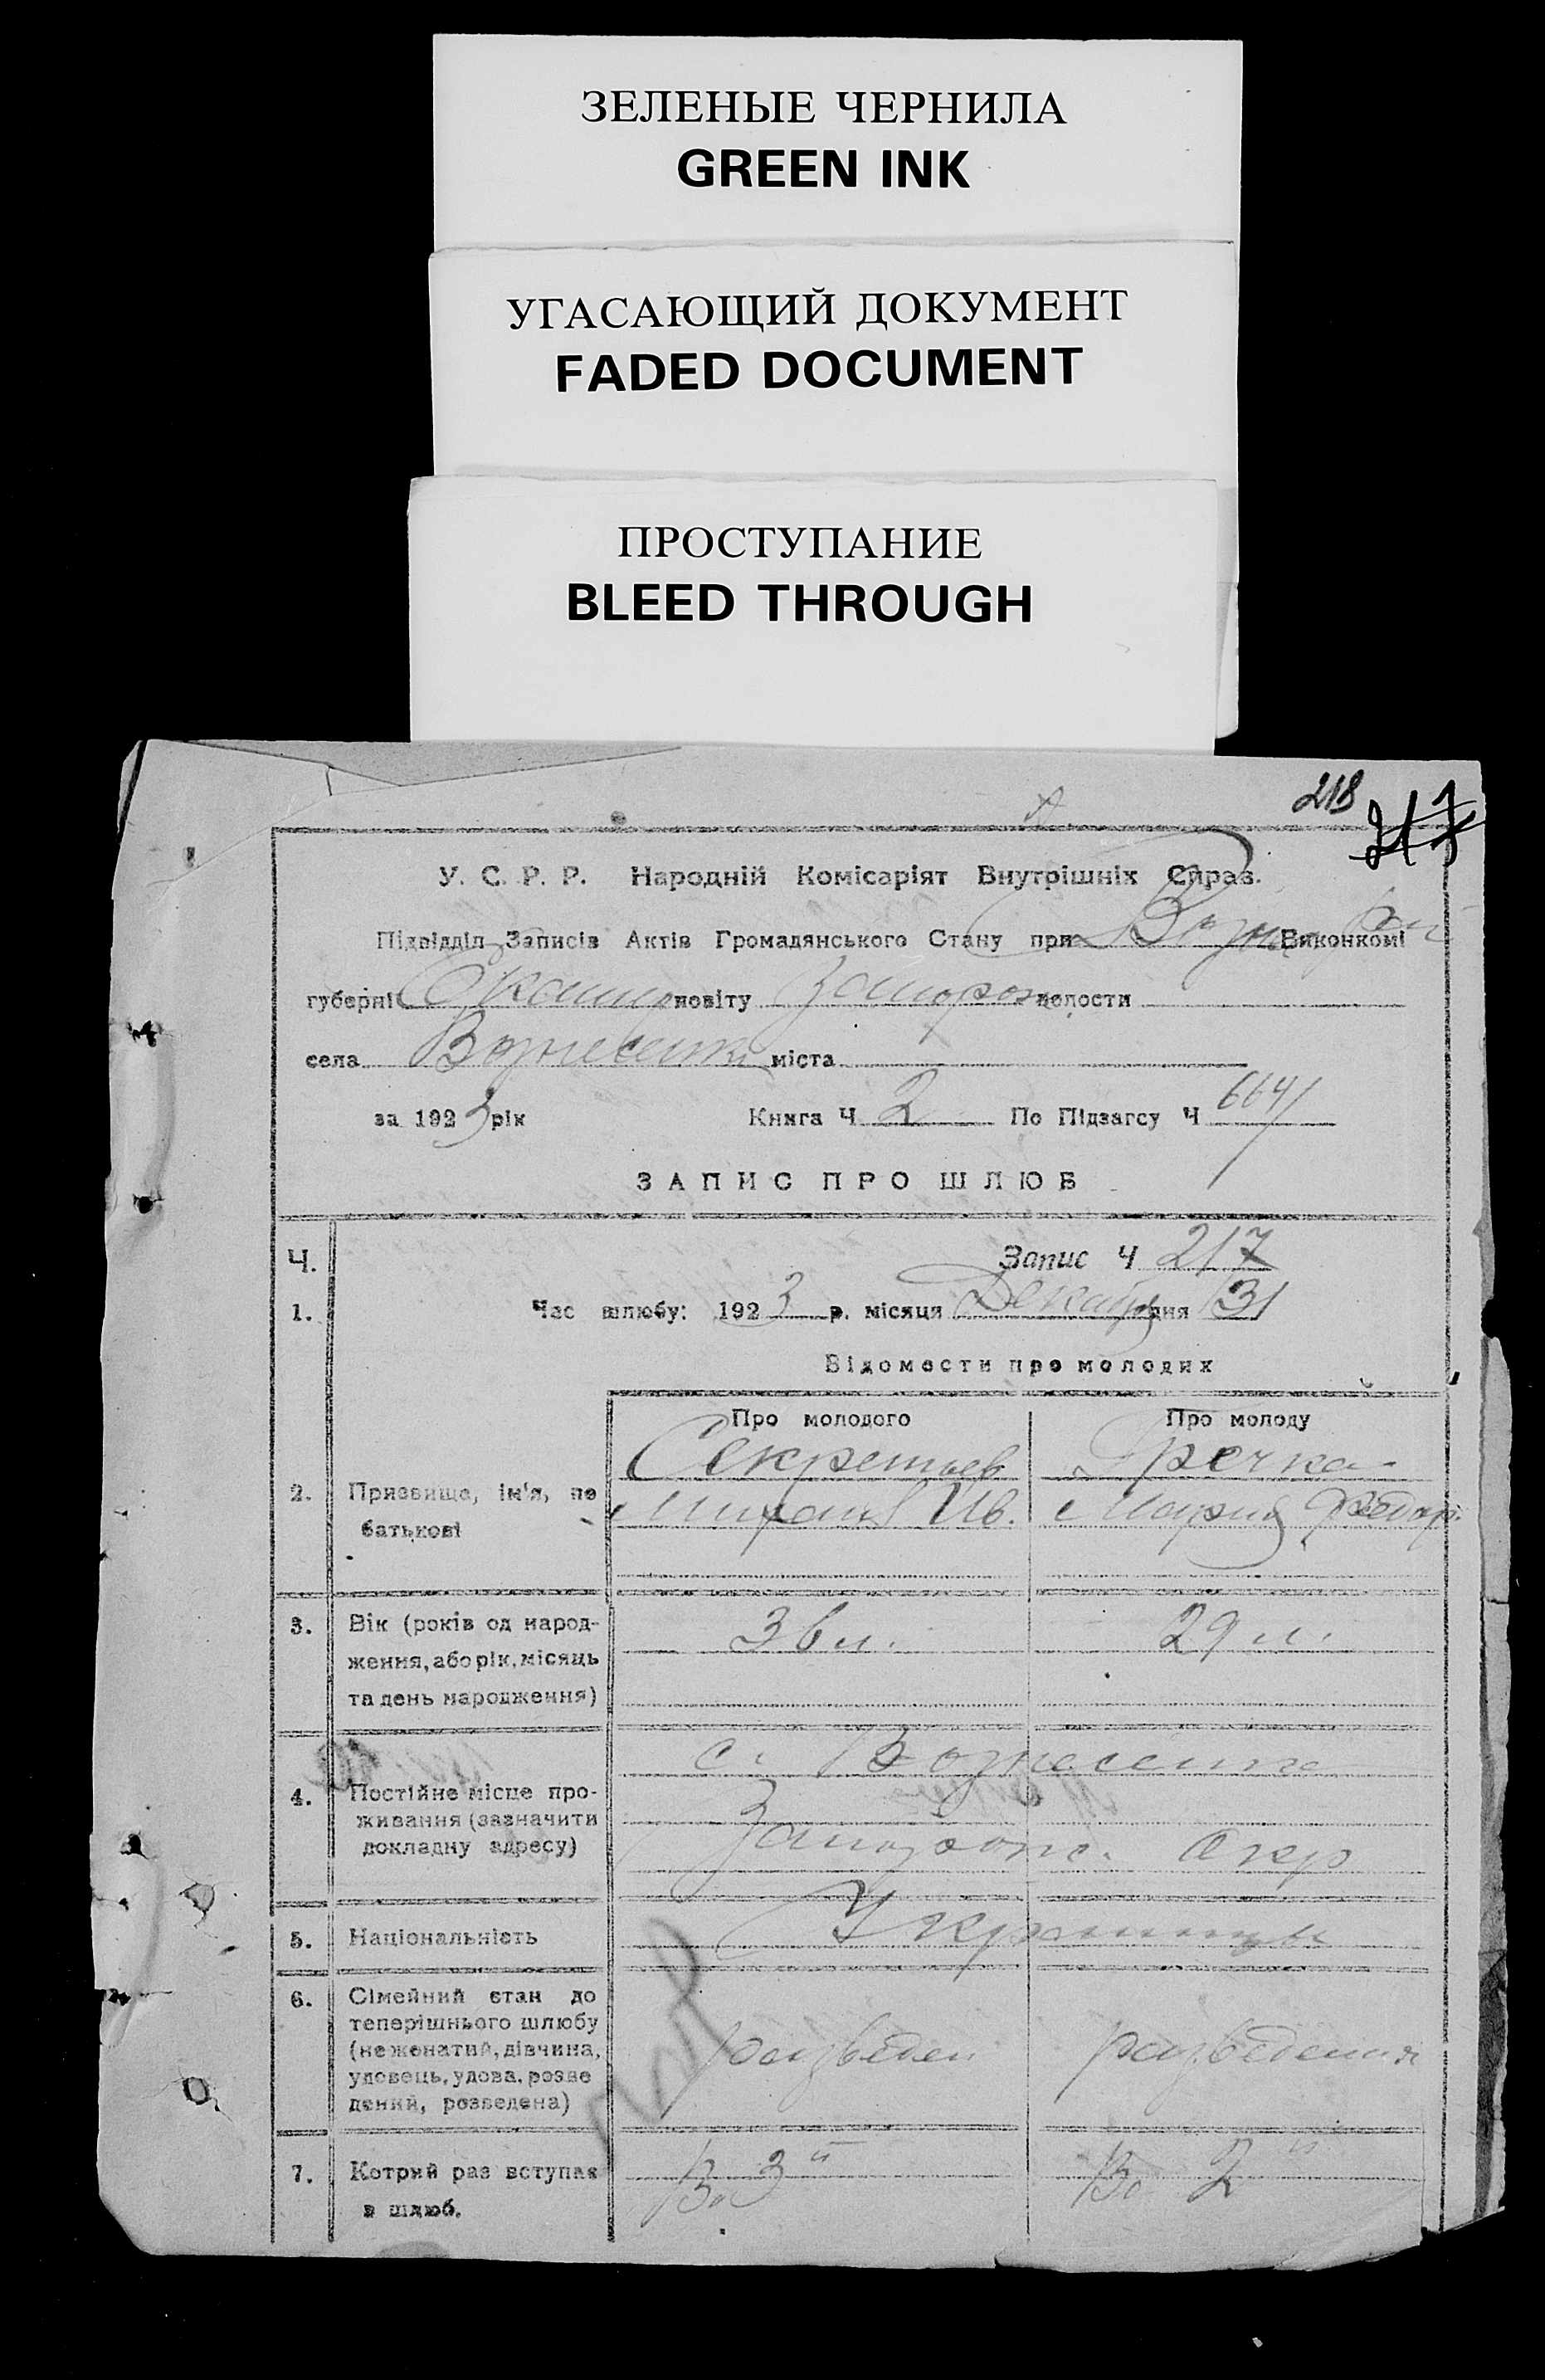 ЗЕЛЕНЫЕ ЧЕРНИЛА
GREEN INK
УГАСАЮЩИЙ ДОКУМЕНТ
FADED DOCUMENT
ПРОСТУПАНИЕ
BLEED THROUGH
218
217
У. С. Р. Р. Народній Комісаріят Внутрішніх Справ.
Підвідділ Записів Актів Громадянського Стану при Виконкомі
губерні повіту Запорож волости
села Вознесенки міста
за 1923 рік Книга Ч 2 По Підзагсу Ч 664
ЗАПИС ПРО ШЛЮБ
Ч. Запис Ч 217
1. Час шлюбу: 1923 р. місяця Декабря дня 31
Відомости про молодих
Про молодого Про молоду
Секретьев Гречка
2. Призвище, ім'я, по Михаил Ив. Мария Федор.
батькові
3. Вік (років од народ- 36 л. 29 л.
ження, або рік, місяць
та день народження)
с. Вознесенка
4. Постійне місце про-
живання (зазначити
докладну адресу) Запорож. Окр
5. Національність Украинцы
6. Сімейний стан до
теперішнього шлюбу
(не женатий, дівчина, разведен разведенная
удовець, удова, розве
дений, розведена)
7. Котрий раз вступає В 3й Во 2й
в шлюб.